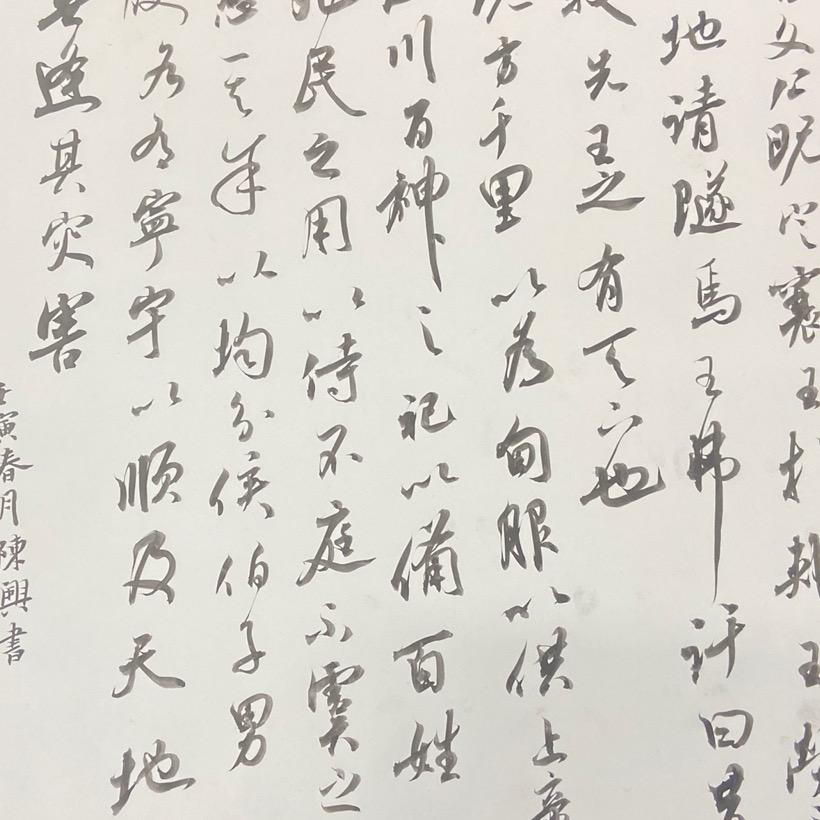 文公既定襄王于郟王勞
地請隧焉王弗許曰昔
先王之有天下也
方千里以為甸服以供上帝
川百神之祀以備百姓
民之用以待不庭不虞之
其餘以均分侯伯子男
各有寧宇以順及天地
逢其災害
壬寅春月陳興書